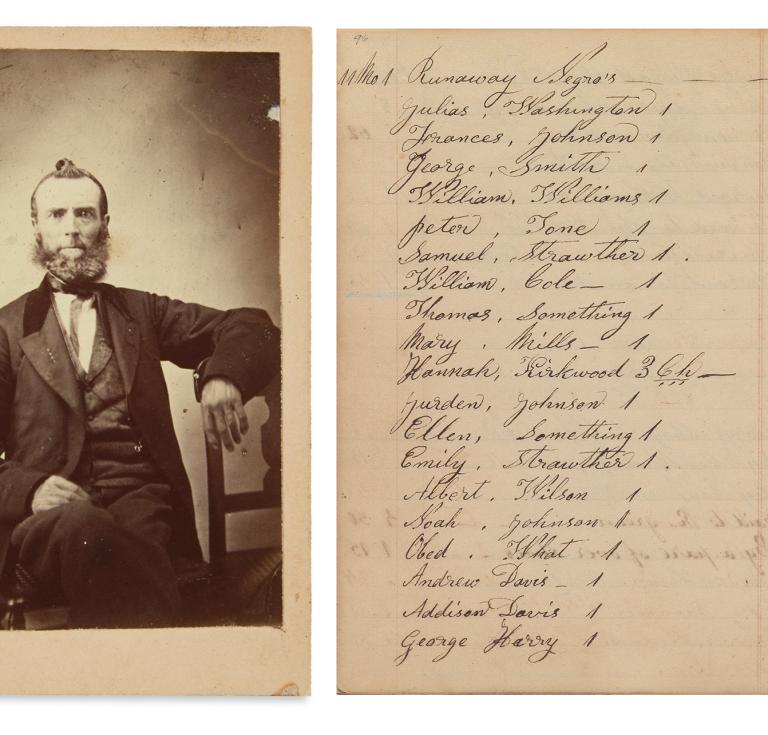 96
11 Mo 1 Runaway Negro's
Julias, Washington 1
Frances, Johnson 1
George, Smith 1
William, Williams 1
peter, Tone 1
Samuel, Strawther 1.
William, Cole 1
Thomas, Something 1
Mary. Mills 1
Hannah, Kirkwood 3 Ch
Jurden, Johnson 1
Ellen, Something 1
Emily. Strawther 1.
Albert. Wilson 1
Noah. Johnson 1
Obed. What 1
Andrew Davis 1
Addison Davis 1
George Harry 1